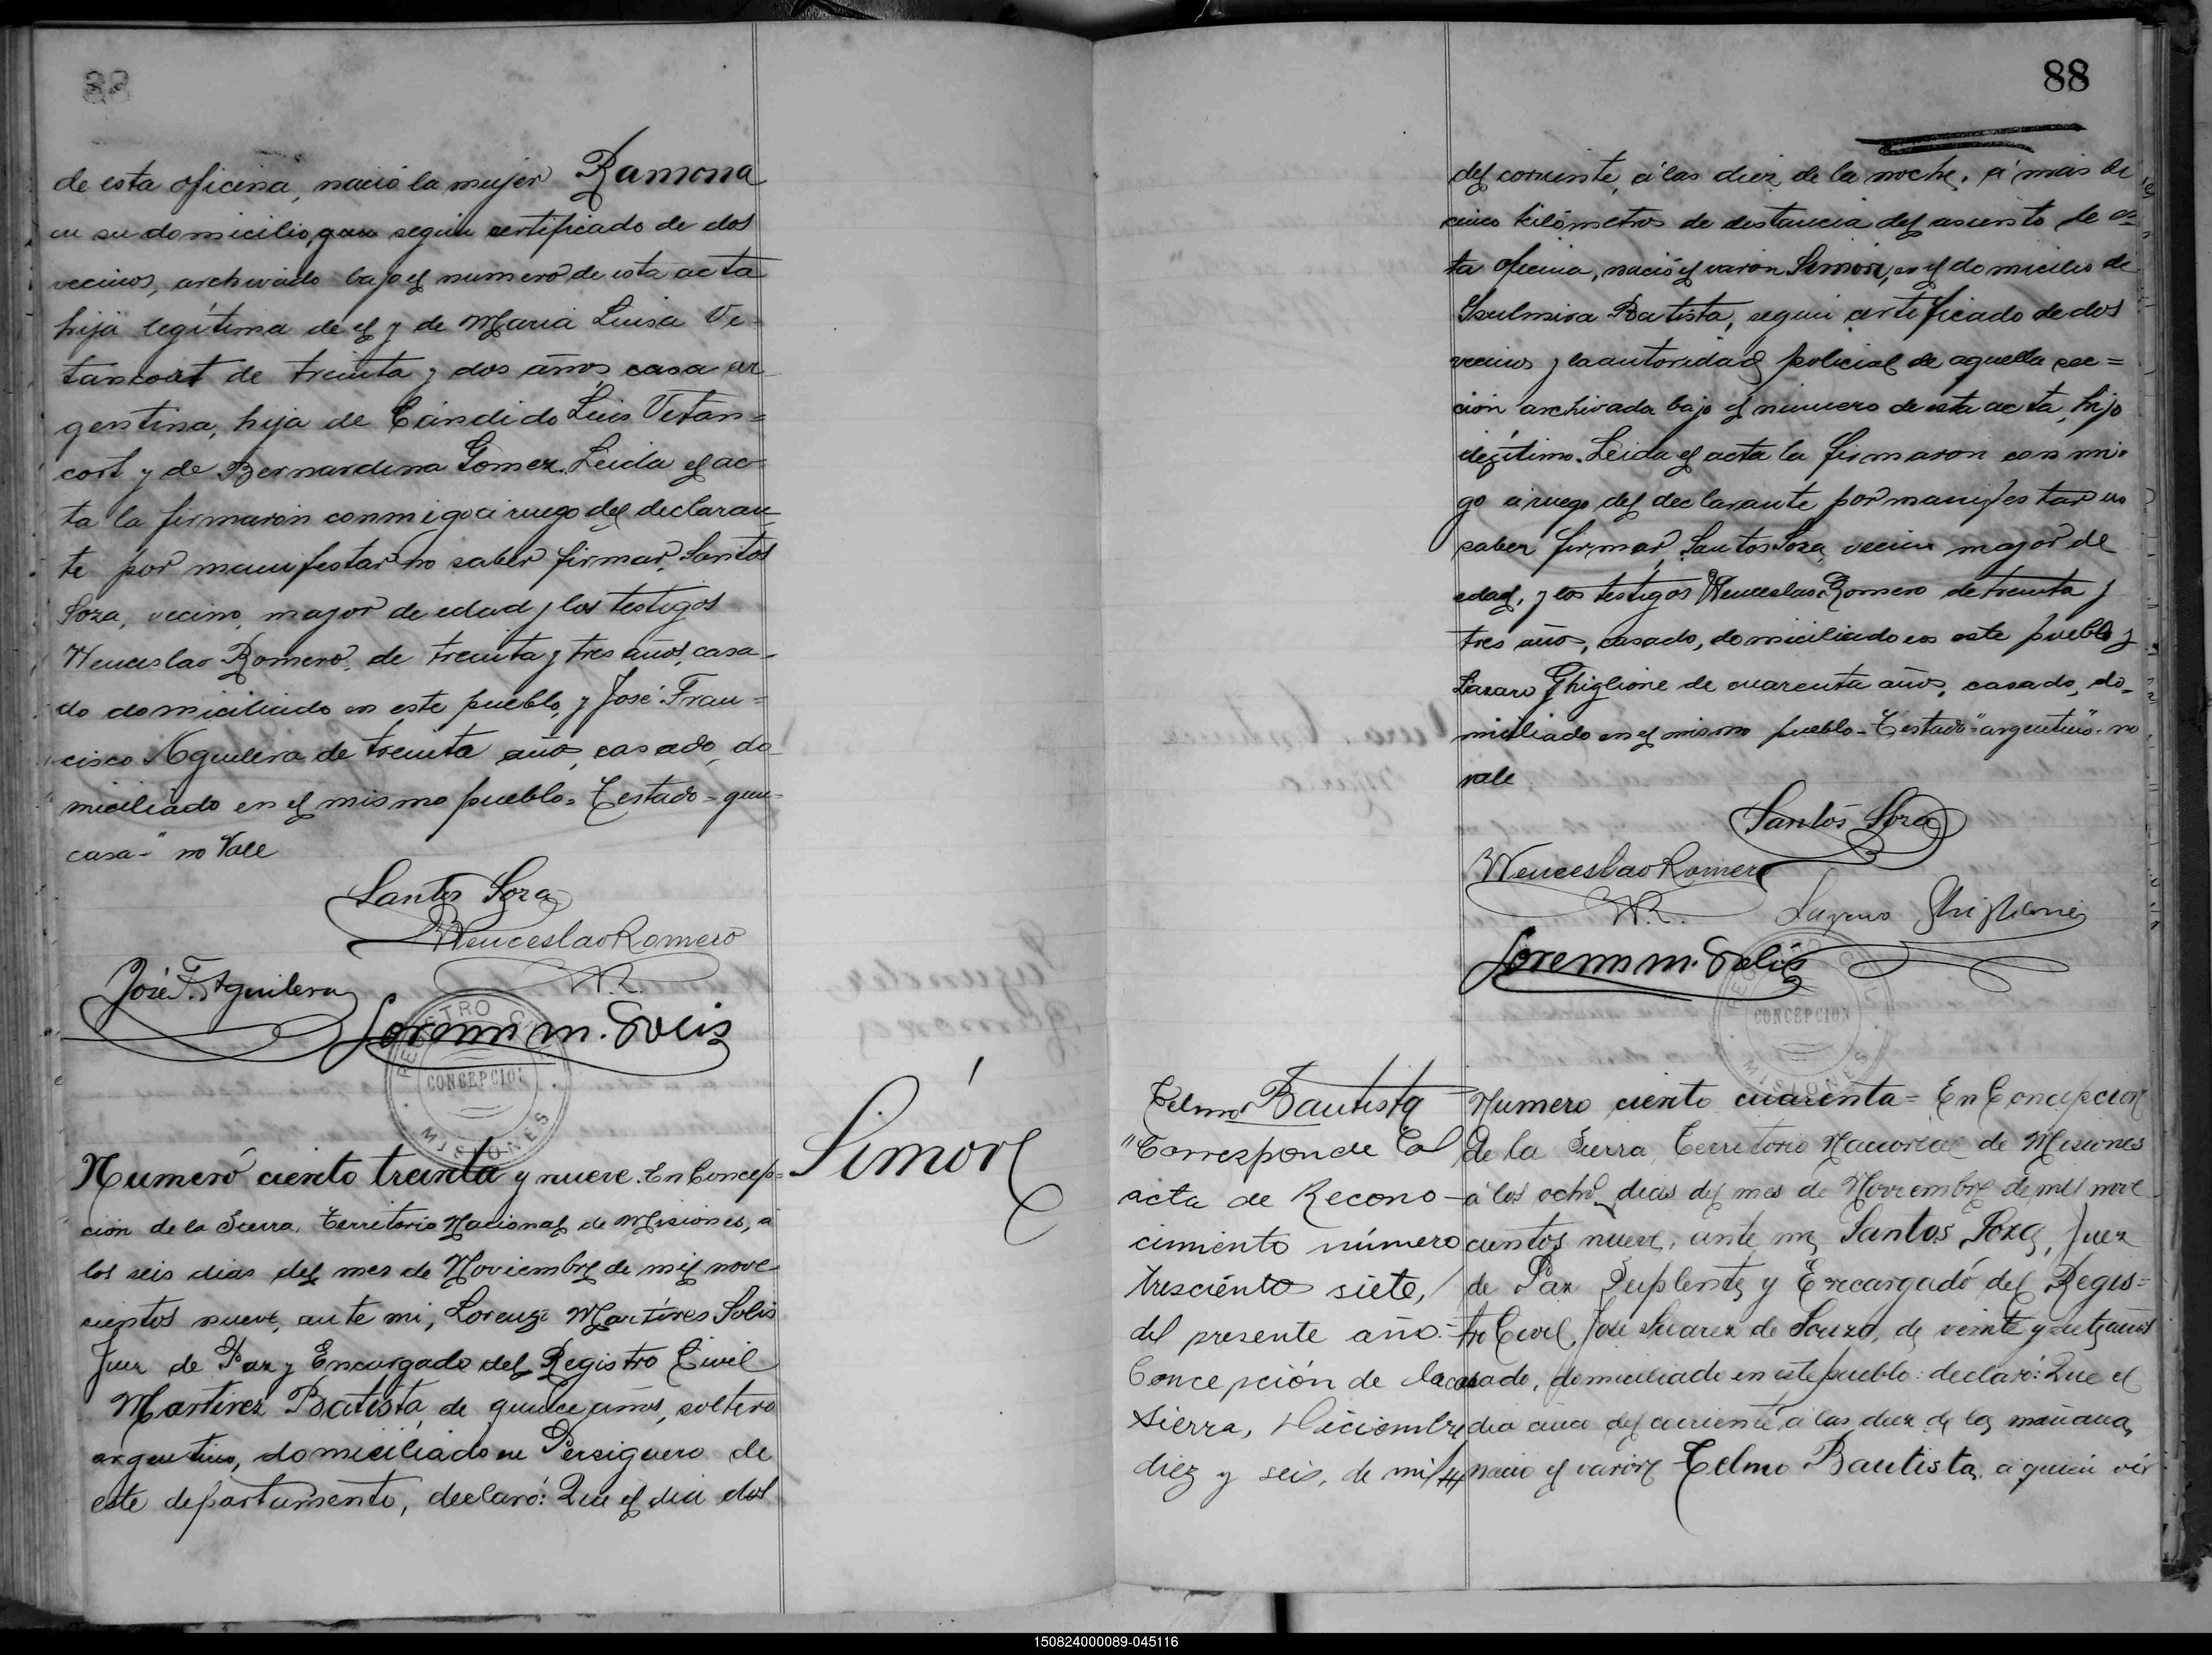 88
de esta oficina, nació la mujer Ramona
en su domicilio, segun certificado de dos
vecinos, archivado bajo el numero de esta acta
hija legítima de el y de Maria Luisa Ve-
tancort de treinta y dos años, casa ar-
gentina, hija de Cándido Luis Vetan=
cort y de Bernardina Gomez. Leida el ac-
ta la firmaron conmigo a ruego del declaran-
te por manifestar no saber firmar, Santos
Soza, vecino, mayor de edad y los testigos
Wenceslao Romero, de treinta y tres años, casa-
do domiciliado en este pueblo, y José Fran=
cisco Aguilera de treinta años, casado, do-
miciliado en el mismo pueblo= Testado=
casa-" no Vale
Santos Soza
Wenceslao Romero
W.R.
José F. Aguilera
Lorenzo M. Solis
REGISTRO CIVIL
CONCEPCION
MISIONES
Numeró ciento treinta y nueve. En Concep=
ción de la Sierra, Territorio Nacional de Misiones, a
los seis dias del mes de Noviembre de mil nove
cientos nueve, ante mi, Lorenzo Martíres Solis
Juez de Paz y Encargado del Registro Civil
Martirez Batista, de quince años, soltero
argentino, domiciliado en Persiguero de
este departamento, declaró: Que el dia dos
Simón
88
del corriente, á las diez de la noche, á mas de
cinco kilómetros de distancia del asiento de es=
ta oficina, nació el varon Simón, en el domicilio de
Batista, segun certificado de dos
vecinos y la autoridad policial de aquella sec=
ción archivada bajo el numero de esta acta, hijo
ilegítimo. Leida el acta la firmaron conmi-
go a ruego del declarante por manifestar no
saber firmar, Santos Soza, vecino mayor de
edad, y los testigos Wenceslao Romero de treinta y
tres años, casado, domiciliado en este pueblo y
Lazaro Ghiglione de cuarenta años, casado, do-
miciliado en el mismo pueblo- Testado "argentino" no
vale
Santos Soza
Wenceslao Romero
W.R.
Lazaro Ghiglione
Lorenzo M. Solis
REGISTRO CIVIL
CONCEPCION
MISIONES
Telmo Bautista
"Corresponde al
acta de Recono-
cimiento número
tresciento siete,
del presente año.-
Concepción de la
Sierra, Diciembre
diez y seis, de mil
Numero ciento cuarenta= En Concepcion
de la Sierra, Territorio Nacional de Misiones
á los ocho dias del mes de Noviembre de mil nove
cientos nueve, ante mi, Santos Soza, Juez
de Paz Suplente y Encargadó del Regis=
tro Civil, José Suarez de Souza, de veinte y siete años
casado, domiciliado en este pueblo: declaró: Que el
dia cinco del corriente á las diez de la mañana,
nacio el varon Telmo Bautista, a quien vis
150824000089-045116